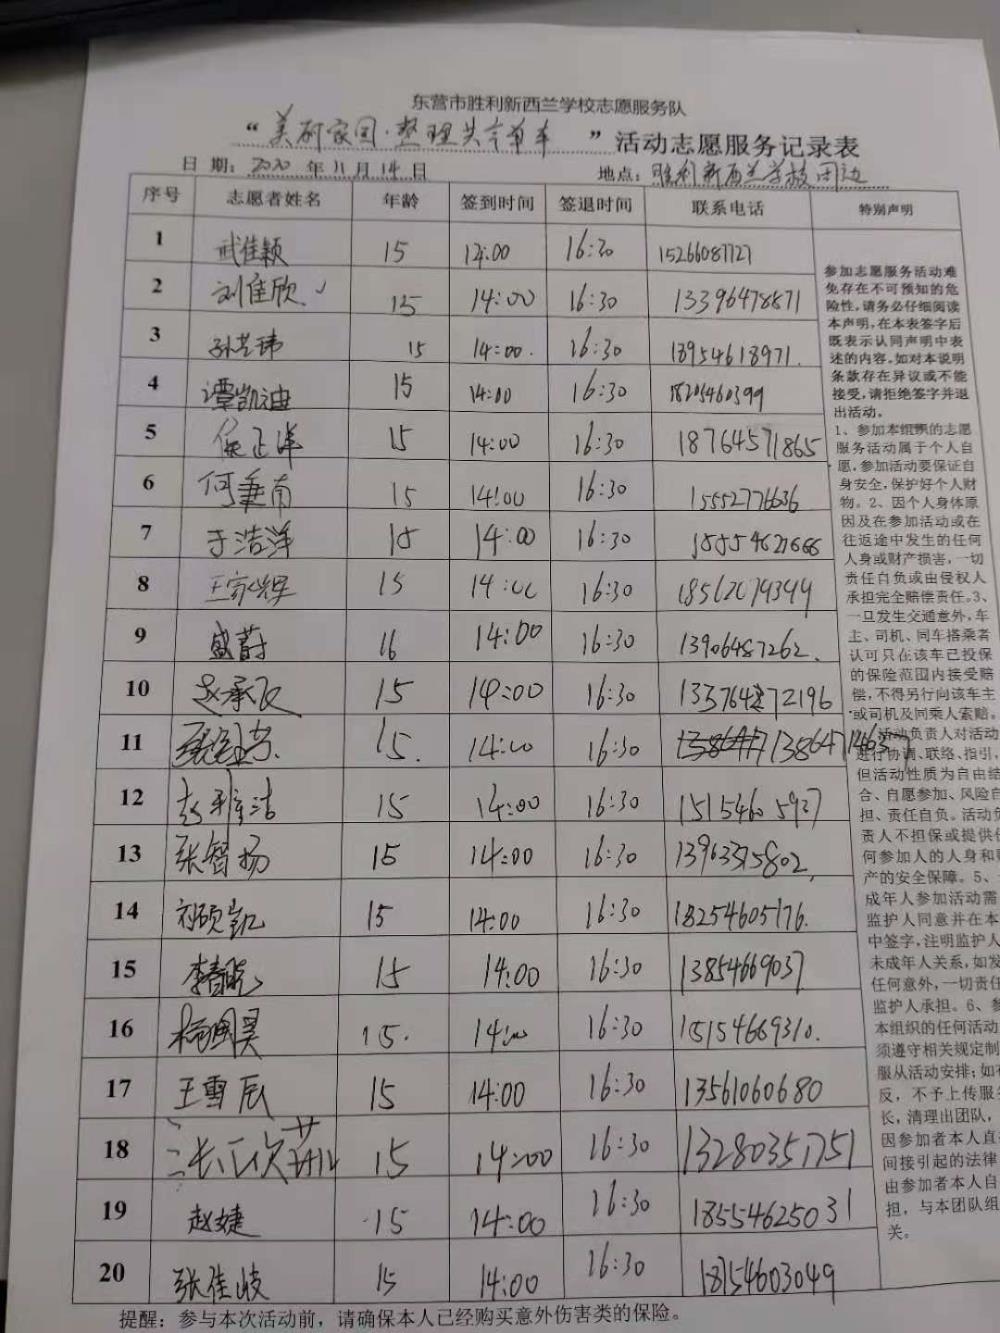 东营市胜利新西兰学校志愿服务队
“美丽家园·整理共享单车”活动志愿服务记录表
日 期: 2020 年 11 月 14 日 地点: 胜利新西兰学校周边
序号 志愿者姓名 年龄 签到时间 签退时间 联系电话 特别声明
1 武佳颖 15 14:00 16:30 15266087727
2 刘佳欣 15 14:00 16:30 13396478871
3 孙艺玮 15 14:00. 16:30 18954618971.
4 谭凯迪 15 14:00 16:30 18205460399
5 侯正洋 15 14:00 16:30 18764571865
6 何秉南 15 14:00 16:30 15552776636
7 于浩洋 15 14:00 16:30
8 王家辉 15 14:00 16:30
9 盛蔚 16 14:00 16:30 13906487262.
10 赵承友 15 14:00 16:30
11 15. 14:00 16:30
12 赵雅洁 15 14:00 16:30 15154605927
13 张智扬 15 14:00 16:30 13963375802
14 刘硕凯 15 14:00 16:30 18254605176.
15 李春晓 15 14:00 16:30 13854669037
16 杨国昊 15. 14:00 16:30 15154669310.
17 王雪辰 15 14:00 16:30 13561060680
18 15 14:00 16:30 13280351751
19 赵婕 15 14:00 16:30 18554625031
20 张佳岐 15 14:00 16:30 18154603049
参加志愿服务活动难
免存在不可预知的危
险性,请务必仔细阅读
本声明,在本表签字后
既表示认同声明中表
述的内容。如对本说明
条款存在异议或不能
接受,请拒绝签字并退
出活动。
1、参加本组织的志愿
服务活动属于个人自
愿,参加活动要保证自
身安全,保护好个人财
物。2、因个人身体原
因及在参加活动或在
往返途中发生的任何
人身或财产损害,一切
责任自负或由侵权人
承担完全赔偿责任。3、
一旦发生交通意外,车
主、司机、同车搭乘者
认可只在该车已投保
的保险范围内接受赔
偿,不得另行向该车主
或司机及同乘人索赔。
活动负责人对活动
进行协调、联络、指引,
但活动性质为自由结
合、自愿参加、风险自
担、责任自负。活动负
责人不担保或提供任
何参加人的人身和财
产的安全保障。5、
成年人参加活动需
监护人同意并在本
中签字,注明监护人
未成年人关系,如发
任何意外,一切责任
监护人承担。6、参
本组织的任何活动
须遵守相关规定制
服从活动安排;如有
反,不予上传服务
长,清理出团队,
因参加者本人直接
间接引起的法律
由参加者本人自
担,与本团队组
关。
提醒：参与本次活动前，请确保本人已经购买意外伤害类的保险。